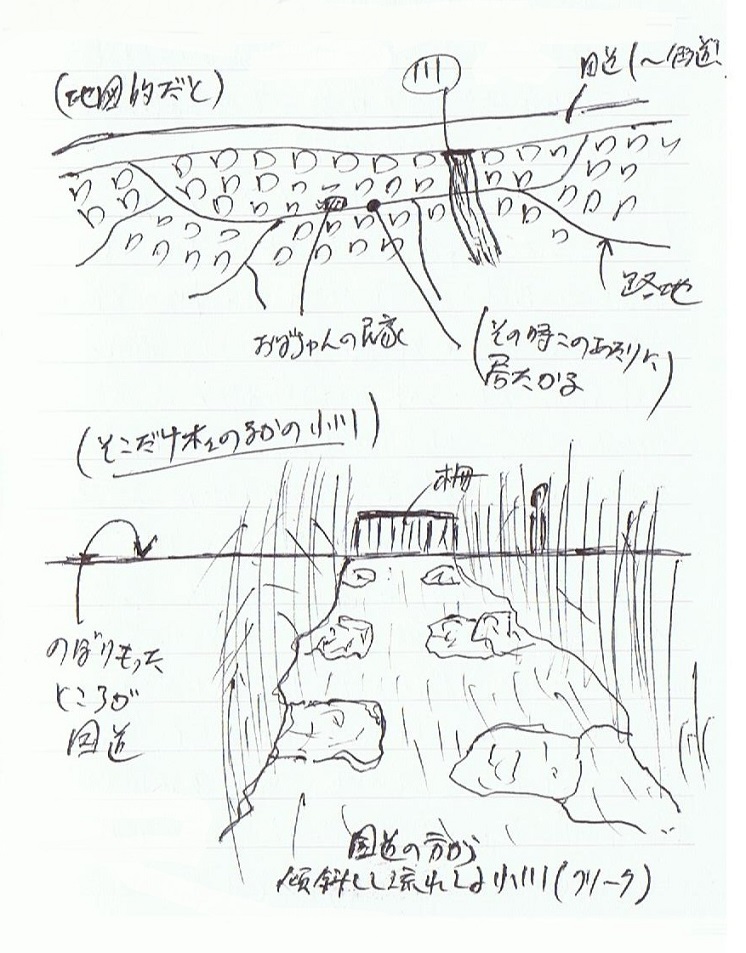 (地図的だと)
川
国道(〜街道)
路地
おばちゃんの民家
(その時このあたりに
居たかな)
(そこだけ木立のなかの小川)
柵
のぼりきった
ところが
国道
国道の方から
傾斜して流れてる小川(クリーク)